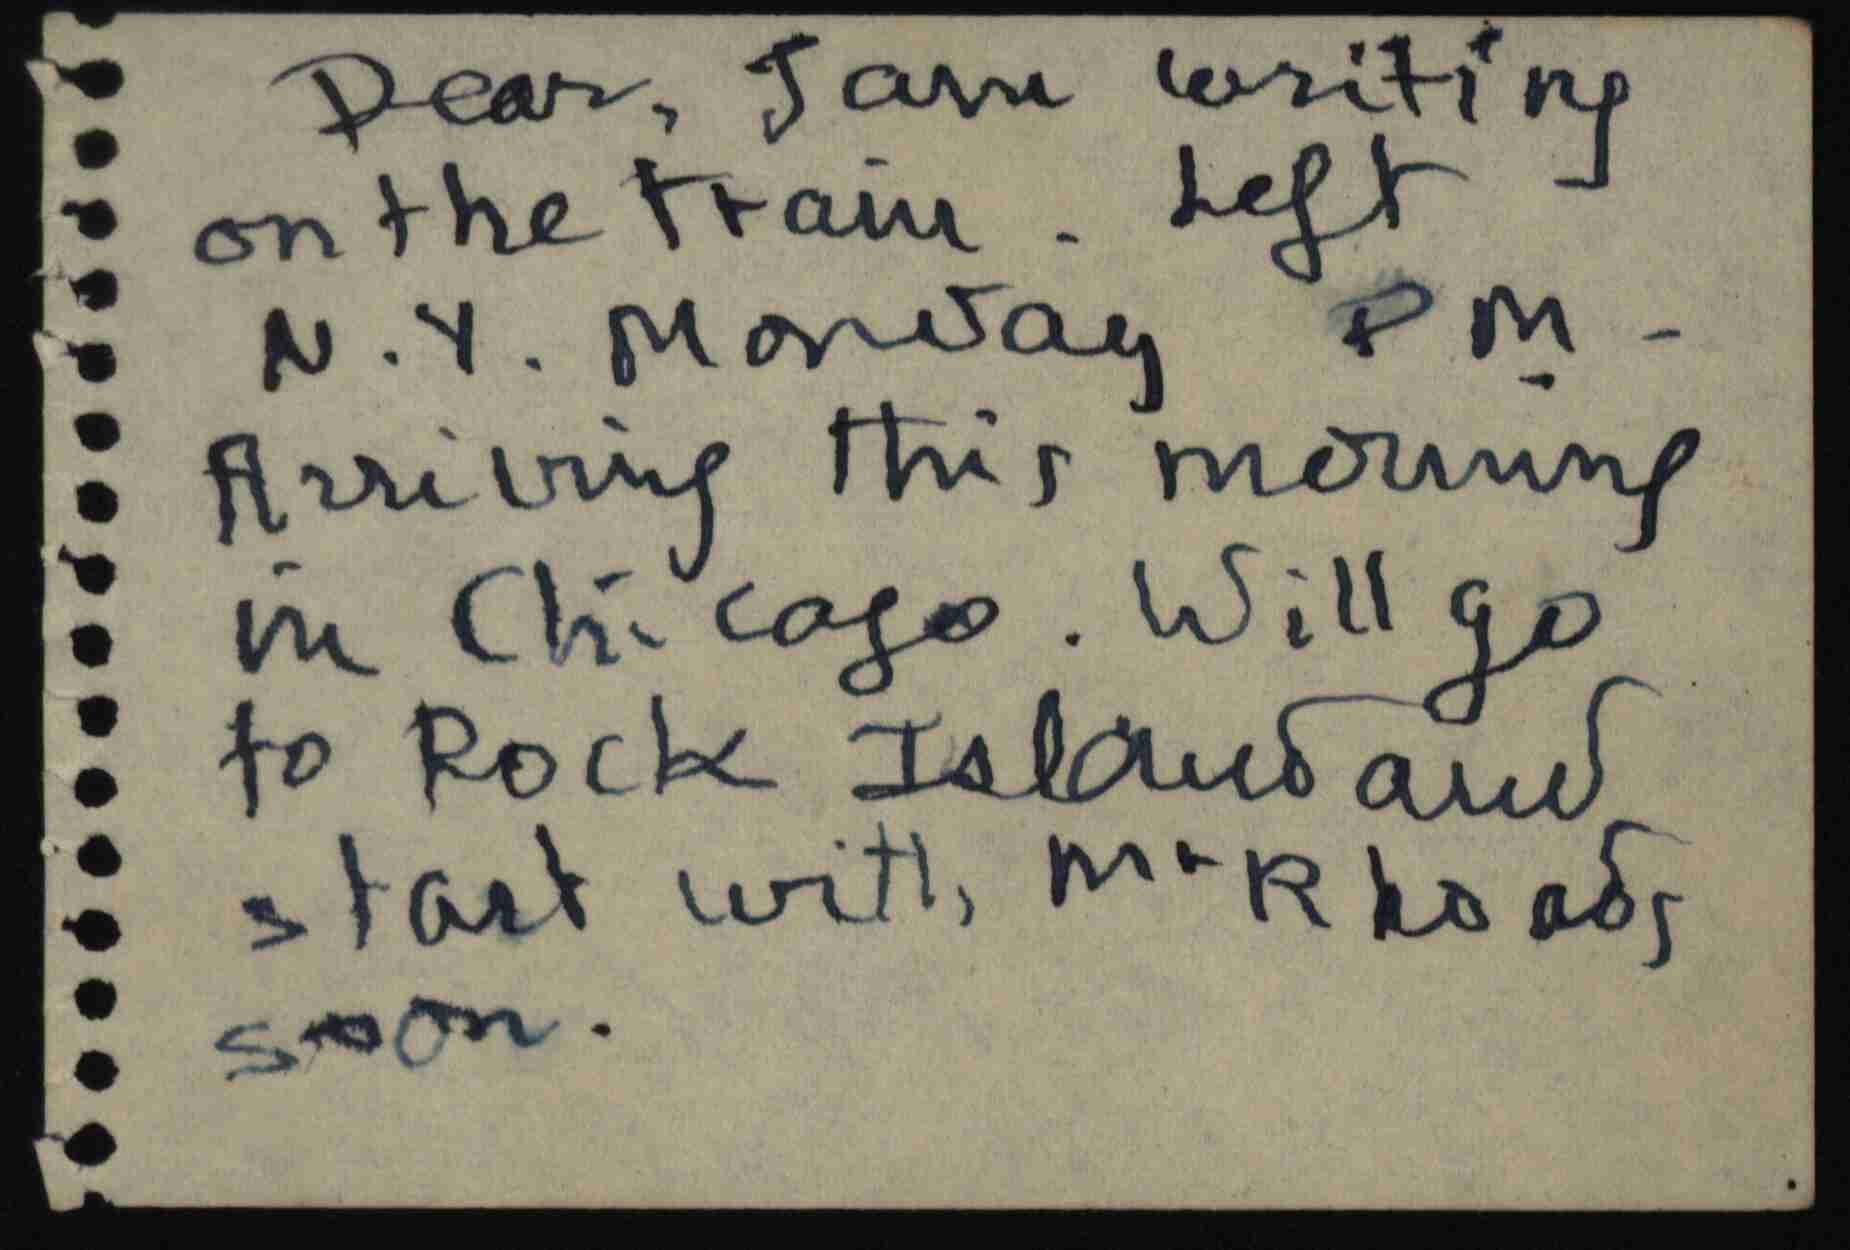 Dear, I am writing
on the train. Left
N.Y. Monday PM -
Arriving this morning
in Chicago. Will go
to Rock Island and
start with Mr Rhoads
soon.